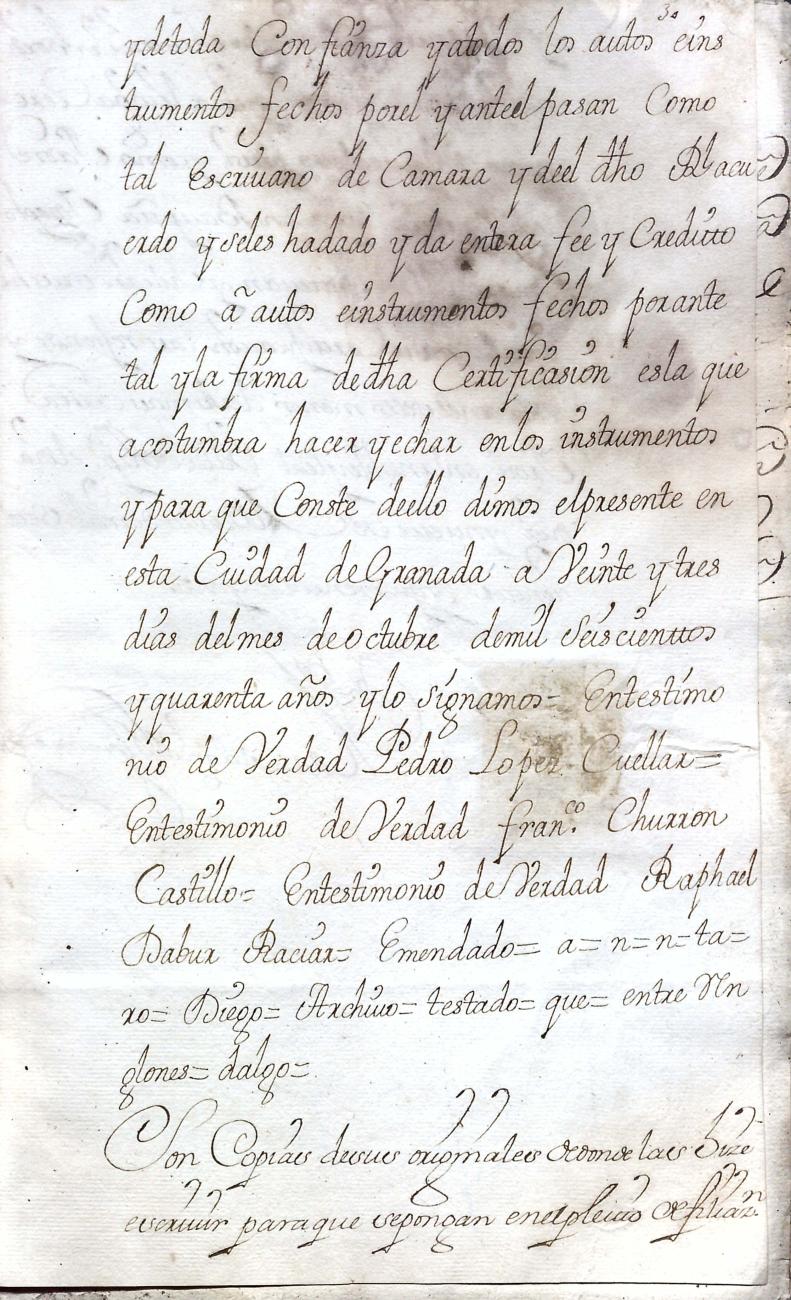 ydetoda Confianza yatodos los autos eins
trumentos fechos porel yanteel pasan Como
tal Escriuano de Camara ydeel dho Rl acu
erdo yseles hadado yda entera fee y Creditto
Como a autos einstrumentos fechos porante
tal yla firma dedha Certificasion esla que
acostumbra hacer yechar enlos instrumentos
ypara que Conste deello dimos elpresente en
esta Ciudad deGranada a Veinte ytres
dias delmes deOctubre demil Seiscienttos
yquarenta años ylo signamos= Entestimo
nio de Verdad Pedro Lopez Cuellar=
Entestimonio deVerdad fran.co Churron
Castillo= Entestimonio deVerdad Raphael
Dabur Raciar= Emendado= a= n= n= ta=
ro= Diego= Archiuo= testado= que= entre Rn
glones= dalgo=
Son Copias desus originales dedonde las hize
escriuir paraque sepongan enelpleito defiliaz.n